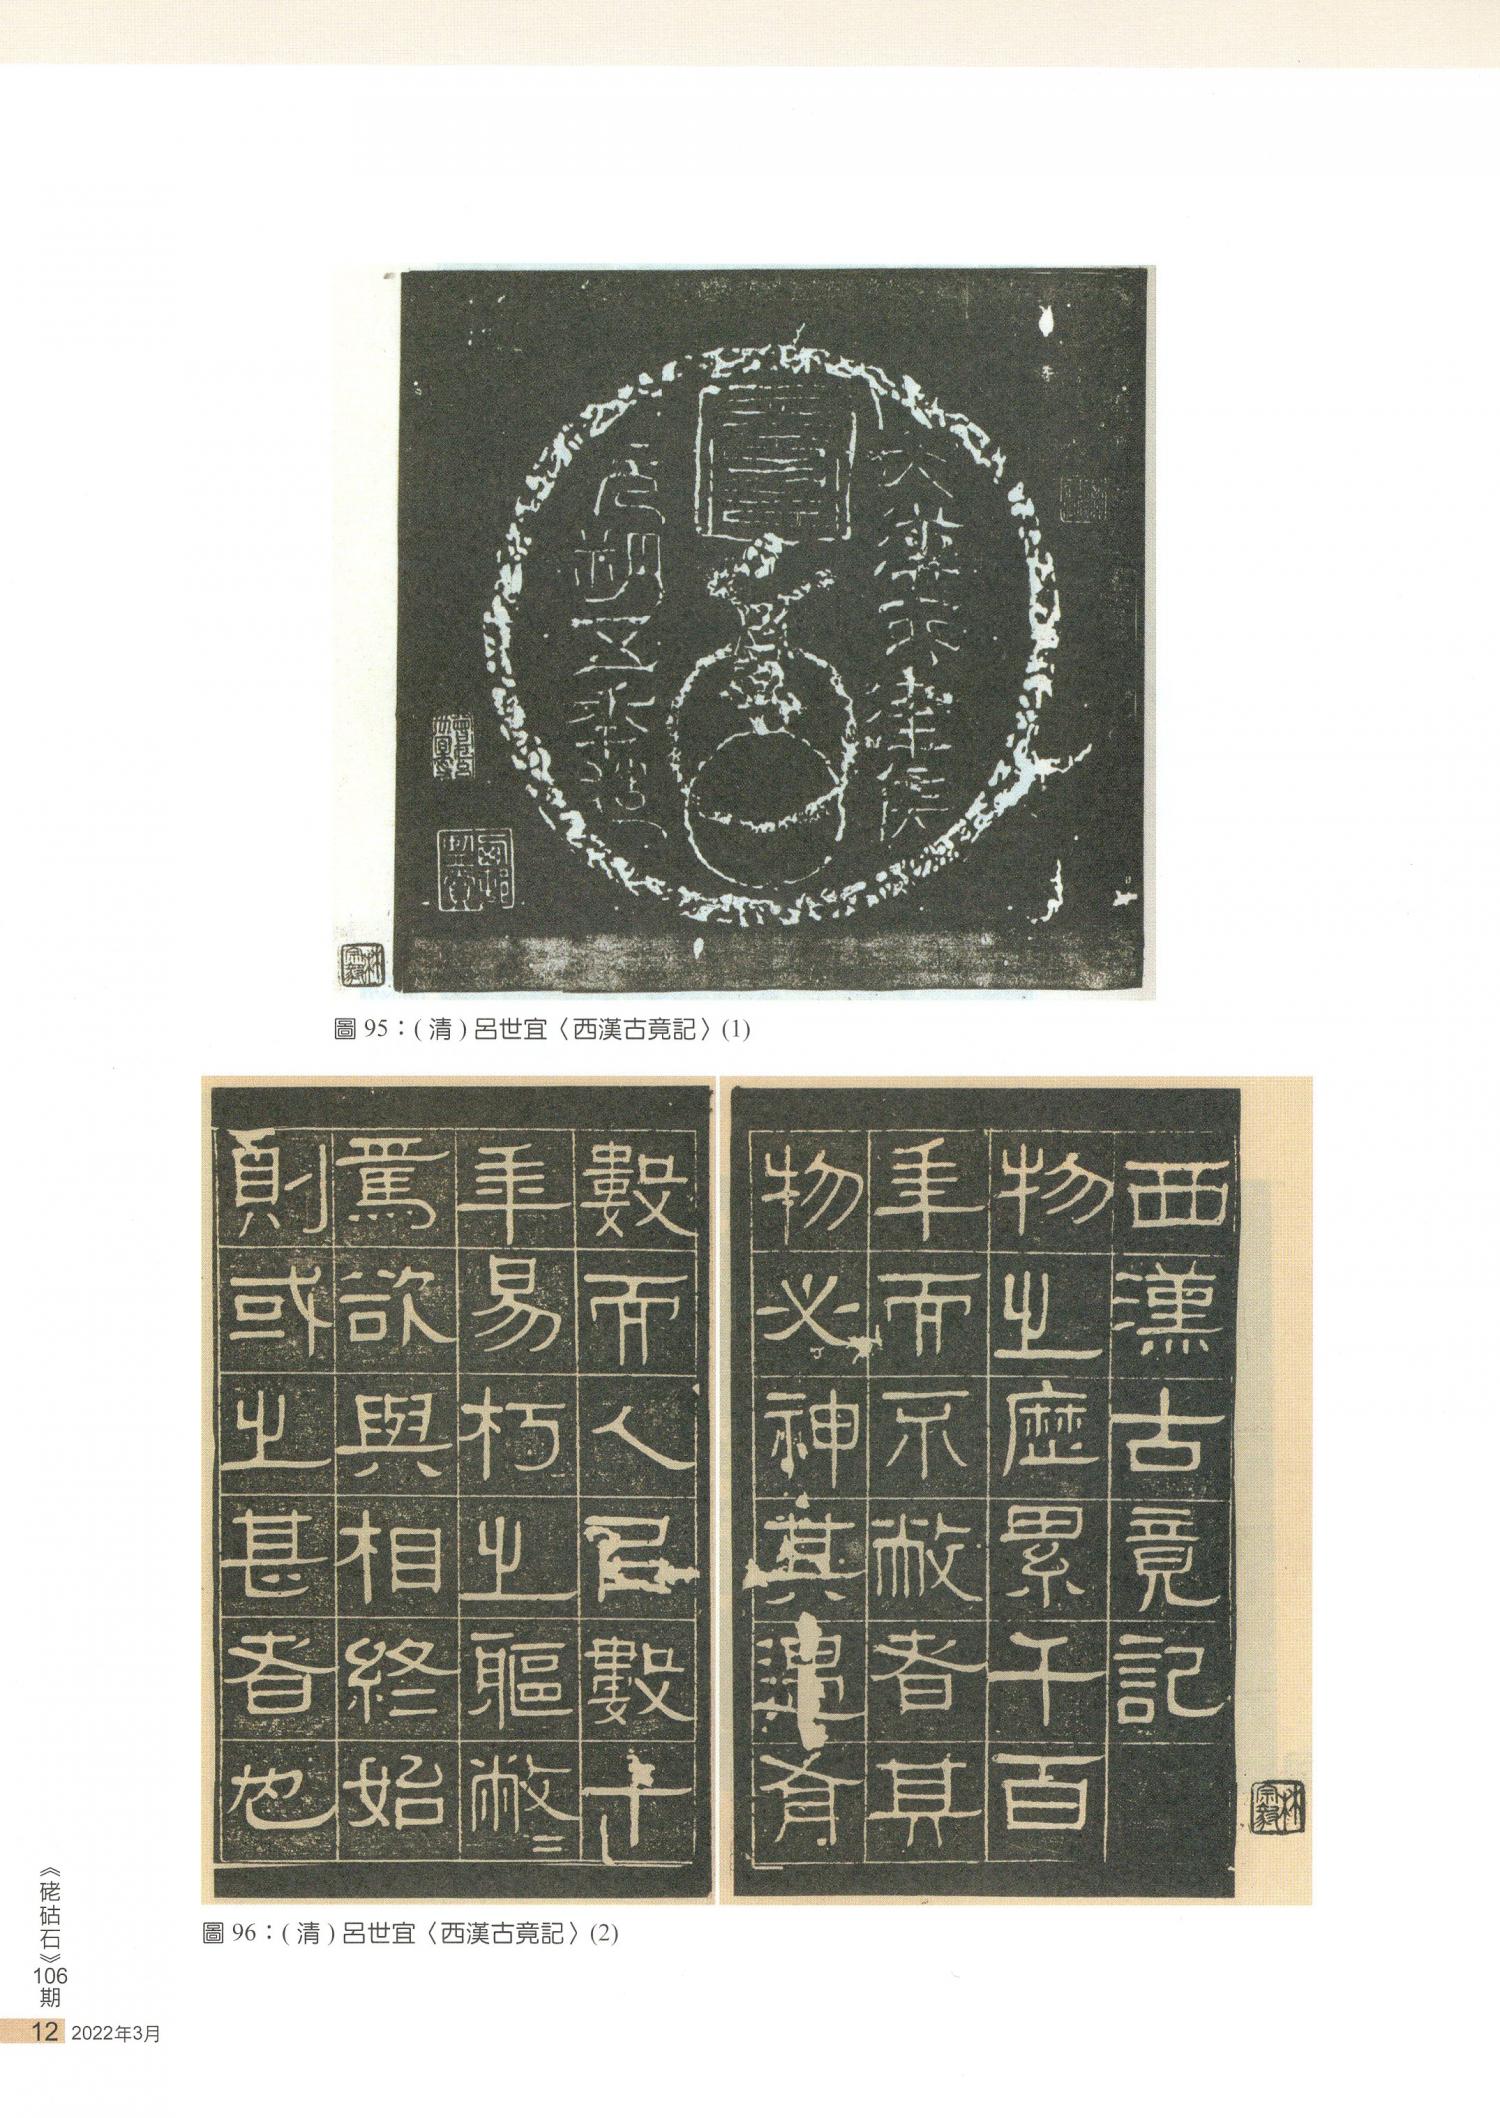 圖 95：( 清 ) 呂世宜〈西漢古竟記〉(1)
西漢古竟記
物之歷累千百
年而不敝者其
物必神其遇有
數而人㠯數十
年易朽之軀敝〻
焉欲與相終始
則或之甚者也
林宗毅
圖 96：( 清 ) 呂世宜〈西漢古竟記〉(2)
《硓𥑮石》106期
12 2022年3月